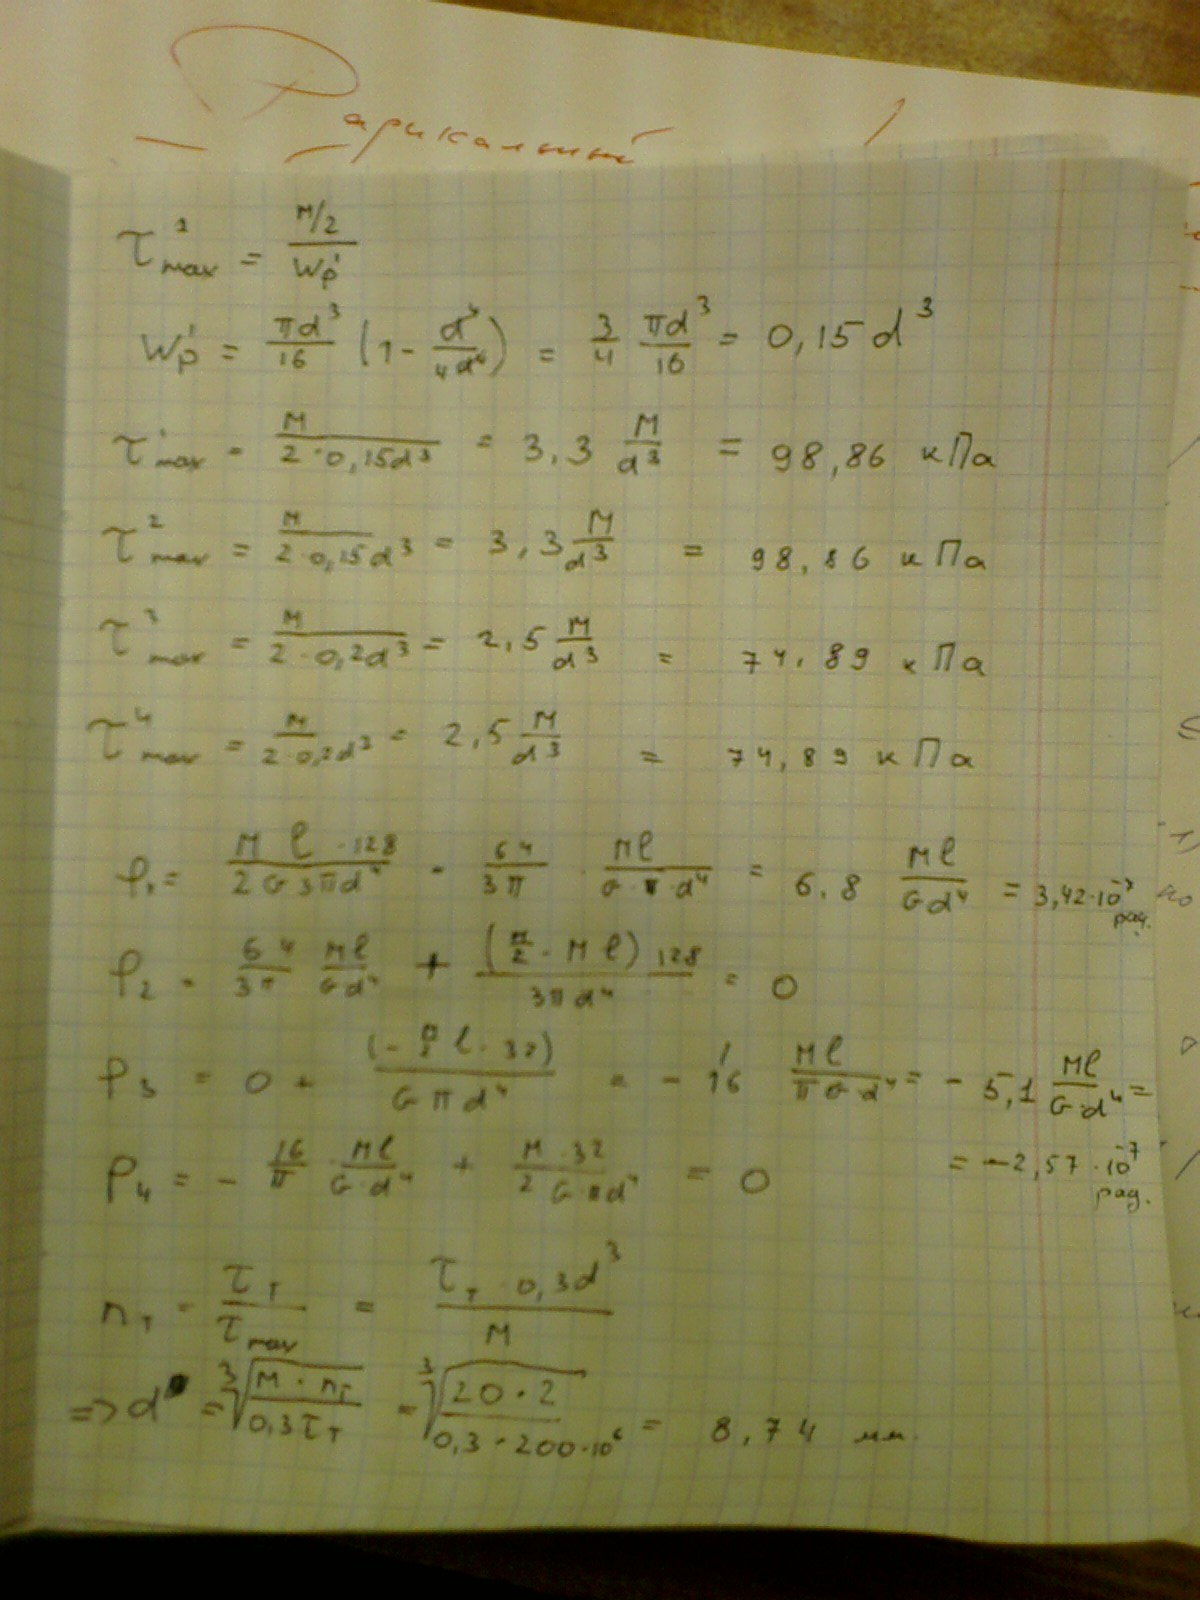 τ¹max = M/2 / Wp'
Wp' = πd³/16 (1 - d⁴/4d⁴) = 3/4 πd³/16 = 0,15 d³
τ'max = M / 2·0,15d³ = 3,3 M/d³ = 98,86 кПа
τ²max = M / 2·0,15d³ = 3,3 M/d³ = 98,86 кПа
τ³max = M / 2·0,2d³ = 2,5 M/d³ = 74,89 кПа
τ⁴max = M / 2·0,2d³ = 2,5 M/d³ = 74,89 кПа
φ₁ = M l ·128 / 2G3πd⁴ = 64/3π · Ml / G·π·d⁴ = 6.8 Ml/Gd⁴ = 3,42·10⁻⁷ рад.
φ₂ = 64/3π Ml/Gd⁴ + (M/2 · M l) 128 / 3πd⁴ = 0
φ₃ = 0 + (- M/2 l·32) / Gπd⁴ = - 16 Ml/πGd⁴ = - 5,1 Ml/G·d⁴ =
= -2,57·10⁻⁷ рад.
φ₄ = - 16/π · Ml/G·d⁴ + M·32 / 2G·πd⁴ = 0
nт = τт/τmax = τт·0,3d³ / M
=> d = ³√(M·nт / 0,3τт) = ³√(20·2 / 0,3·200·10⁶) = 8,74 мм.